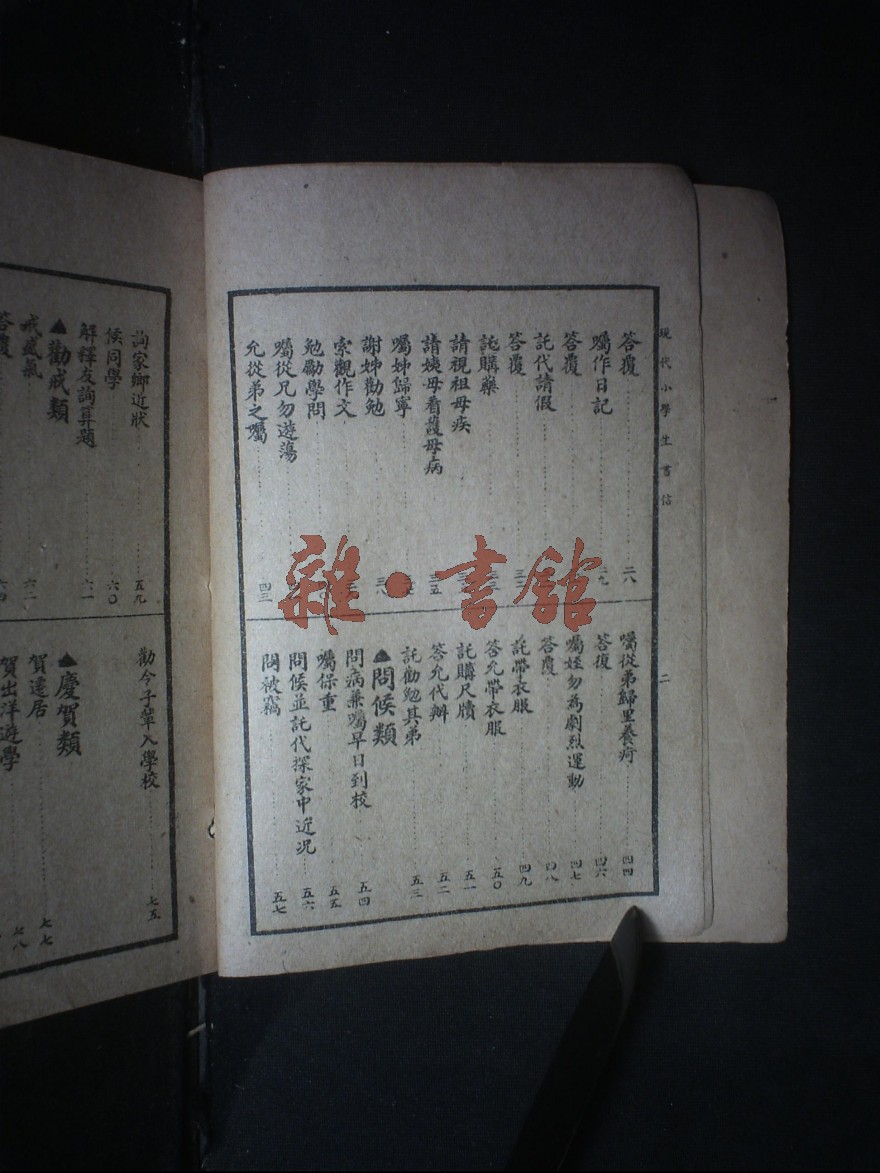 現代小學生書信
二
答覆 二八
囑作日記 二九
答覆
託代請假
答覆 三二
託購藥
請視祖母疾
請姨母看護母病 三五
囑姊歸寧
謝姊勸勉 三八
索觀作文
勉勵學問
囑從兄勿遊蕩
允從弟之囑 四三
囑從弟歸里養疴 四四
答復 四六
囑姪勿為劇烈運動 四七
答覆 四八
託帶衣服 四九
答允帶衣服 五〇
託購尺牘 五一
答允代辦 五二
託勸勉其弟 五三
▲問候類
問病兼囑早日到校 五四
囑保重 五五
問候並託代探家中近況 五六
問被竊 五七
詢家鄉近狀 五九
候同學 六〇
解釋友詢算題 六一
▲勸戒類
戒盛氣 六二
答覆
勸令子輩入學校 七五
▲慶賀類
賀遷居 七七
賀出洋遊學 七八
雜·書館